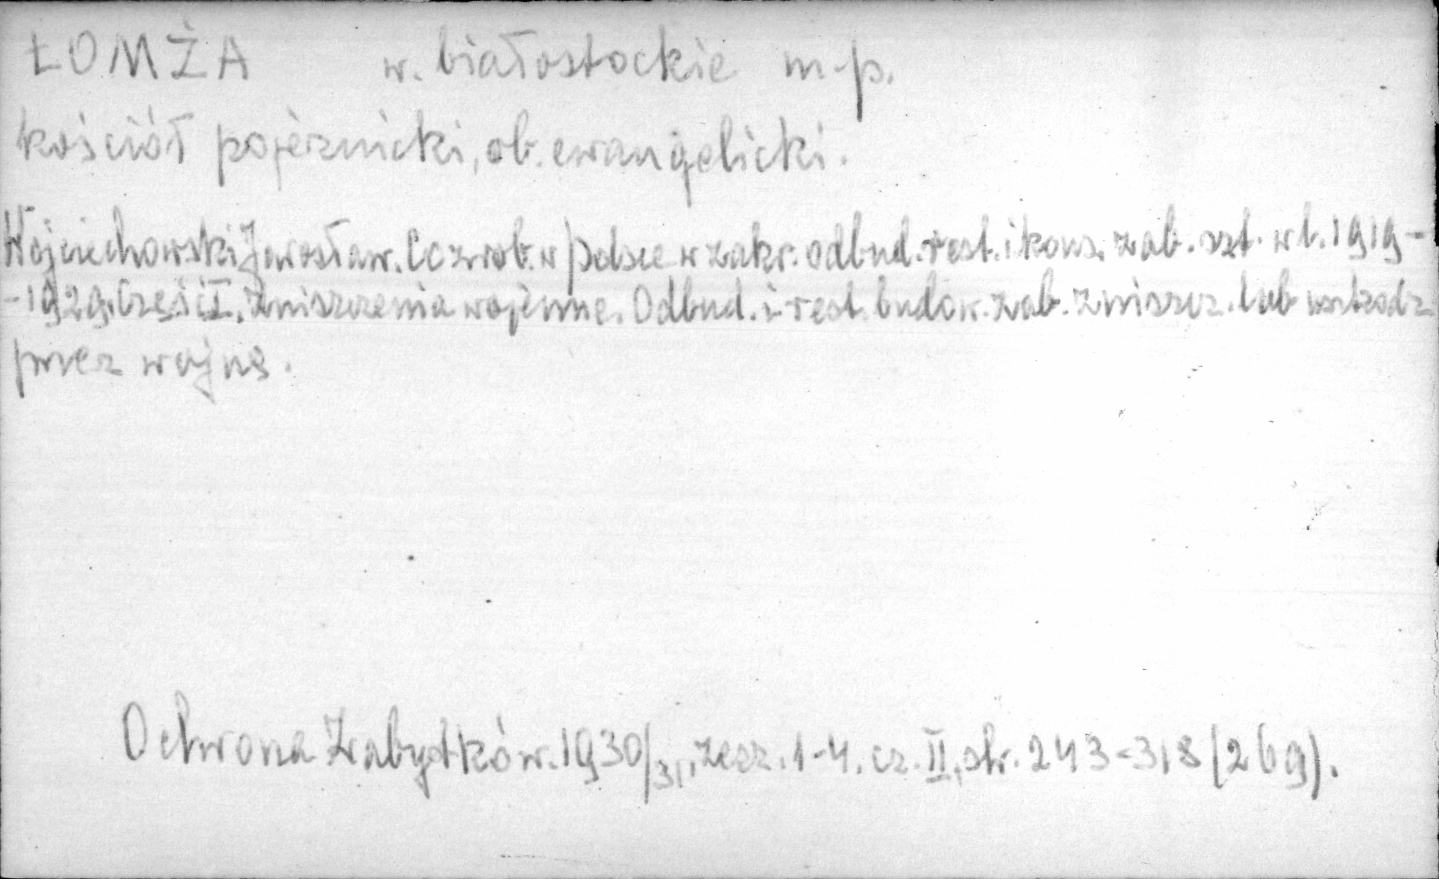 ŁOMŻA w. białostockie m-p.
kościół pojezuicki, ob. ewangelicki.
Wojciechowski Jarosław. Co zrob. w Polsce w zakr. odbud. rest. i kons. zab. szt. w l. 1919-
-1929. Część I. Zniszczenia wojenne. Odbud. i rest. budow. zab. zniszcz. lub uszkodz
przez wojnę.
Ochrona Zabytków. 1930/31, zesz. 1-4. cz. II, str. 243-318 (269).